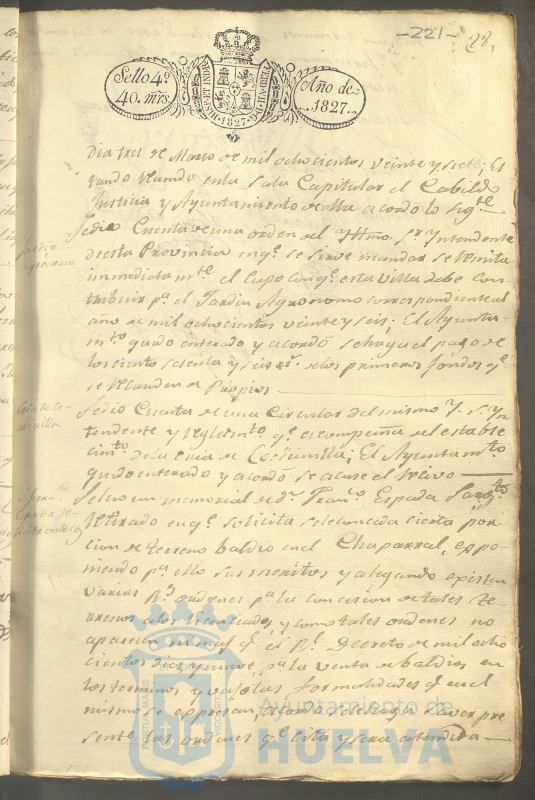 -221- 28.
Sello 4º
40. mrs.
Año de
1827.
Dia tres de Marzo de mil ochocientos veinte y siete; Es
tando reunido en la Sala Capitular el Cabildo
Justicia y Ayuntamiento de Va. acordo lo sigte.
Jardin
agronomo
Se dio Cuenta de una orden del Yltmo. Sr. Yntendente
de esta Provincia en qe. se sirve mandar se remita
inmediatamte. el Cupo con qe. esta Villa debe con
tribuir pa. el Jardin Agronomo correspondiente al
año de mil ochocientos veinte y seis; El Ayunta-
mto. quedo enterado y acordó se haga el pago de
los ciento setenta y seis rs. de los primeros fondos qe.
se recauden de Propios.
Cria de Co-
chinilla
Se dio Cuenta de una Circular del mismo Y. Sr. Yn
tendente y reglamto. qe. acompaña del estable
cimto. de la Cria de Cochinilla; El Ayuntamto.
quedo enterado y acordó se acuse el recivo
Espada
Se leio un memorial de Dn. Franco. Espada Sargto.
retirado en qe. solicita se le conceda cierta por-
cion de terreno baldio en el Chaparral, expo-
niendo pa. ello sus meritos y alegando existen
varias Rs. ordenes pa. la concesion de tales te-
rrenos a los licenciados, y como tales ordenes no
aparecen ni mas qe. el Rl. Decreto de mil ocho
cientos diez y nueve, pa. la venta de baldios en
los terminos y vajo las formalidades qe. en el
mismo se expresan; acordo se le haga saver pre
sente las ordenes qe. cita y sera atendida
Ayuntamiento de
HUELVA